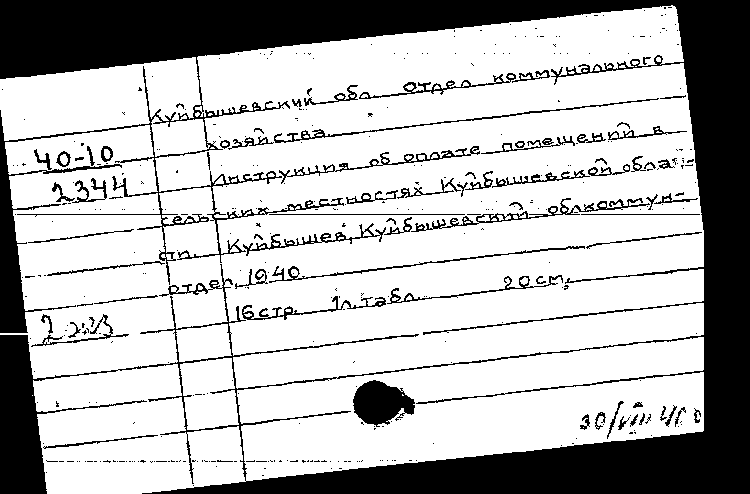 Куйбышевский обл. отдел коммунального
хозяйства.
40-10
2344
Инструкция об оплате помещений в
сельских местностях Куйбышевской облас-
ти. Куйбышев, Куйбышевский облкоммун-
отдел, 1940.
16 стр. 1 л. табл. 20 см.
30/VIII 40